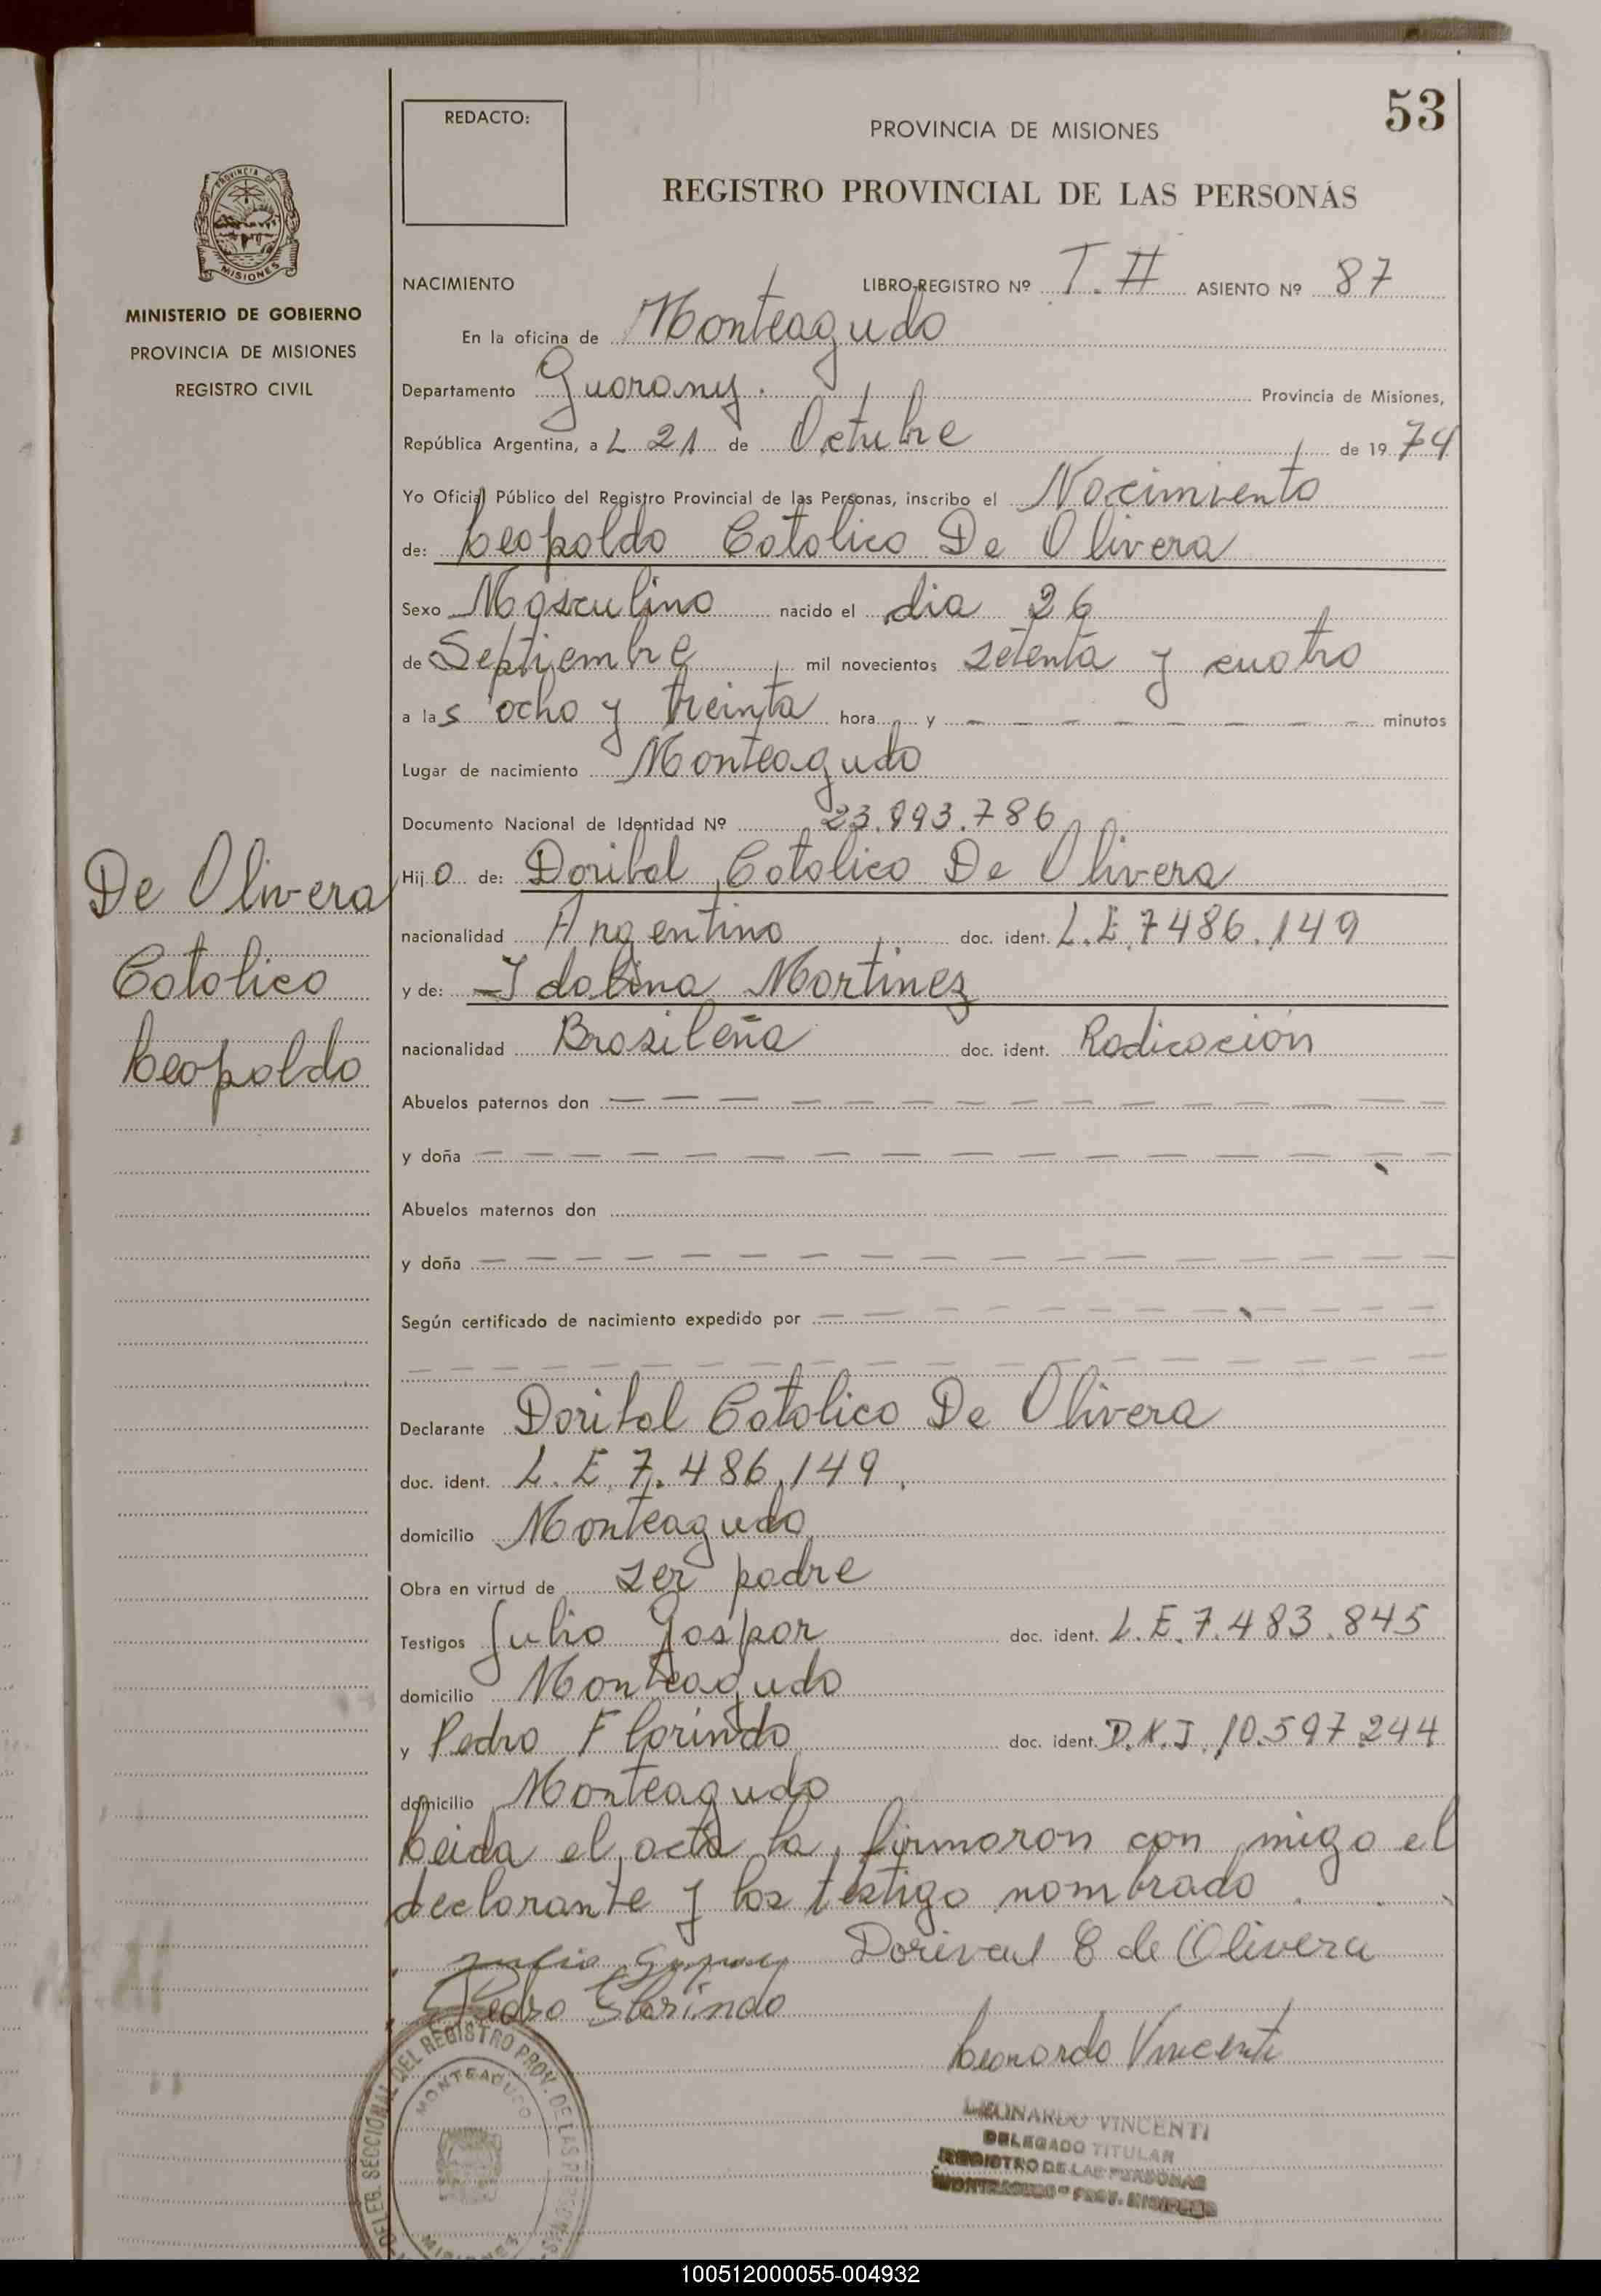 53
REDACTO:
PROVINCIA DE MISIONES
REGISTRO PROVINCIAL DE LAS PERSONAS
PROVINCIA DE
MISIONES
MINISTERIO DE GOBIERNO
PROVINCIA DE MISIONES
REGISTRO CIVIL
NACIMIENTO LIBRO-REGISTRO Nº T. II ASIENTO Nº 87
En la oficina de Monteagudo
Departamento Guarany. Provincia de Misiones,
República Argentina, a L 21 de Octubre de 1974
Yo Oficial Público del Registro Provincial de las Personas, inscribo el Nacimiento
de: Leopoldo Catolico De Olivera
Sexo Masculino nacido el dia 26
de Septiembre mil novecientos setenta y cuatro
a las ocho y treinta hora y — — — minutos
Lugar de nacimiento Monteagudo
Documento Nacional de Identidad Nº 23.893.786
De Olivera
Catolico
Leopoldo
Hijo de: Doribal Catolico De Olivera
nacionalidad Argentino doc. ident. L.E. 7486.149
y de: Idalina Martinez
nacionalidad Brasileña doc. ident. Radicacion
Abuelos paternos don — — —
y doña — — —
Abuelos maternos don
y doña — — —
Según certificado de nacimiento expedido por — — —
Declarante Doribal Catolico De Olivera
doc. ident. L.E. 7.486.149.
domicilio Monteagudo
Obra en virtud de ser padre
Testigos Julio Gaspar doc. ident. L.E. 7.483.845
domicilio Monteagudo
y Pedro Florindo doc. ident. D.N.I. 10.597.244
domicilio Monteagudo
Leida el acta la firmaron con migo el
declarante y los testigo nombrado.
Julio Gaspar Dorival C de Olivera
Pedro Florindo
Leonardo Vincenti
LEONARDO VINCENTI
DELEGADO TITULAR
REGISTRO DE LAS PERSONAS
MONTEAGUDO - PROV. MISIONES
DELEG. SECCIONAL DEL REGISTRO PROV. DE LAS PERSONAS
MONTEAGUDO
MISIONES
100512000055-004932